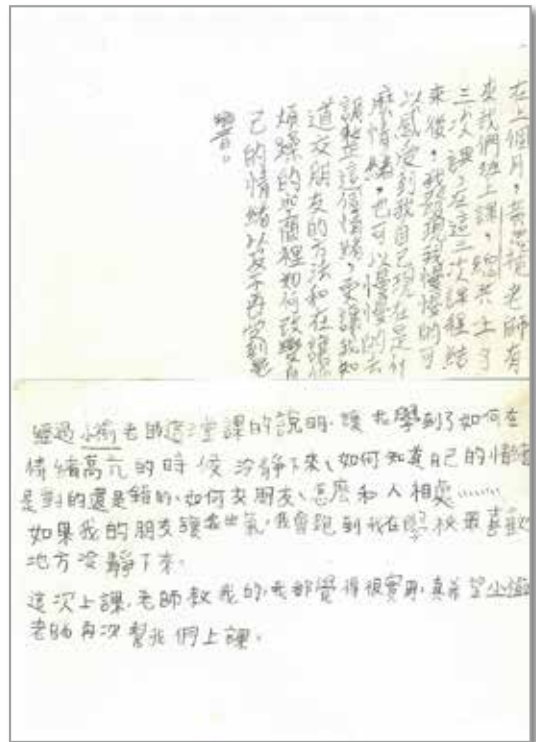 在上個月,黃老師有
來我們班上課,總共上了
三次課,在這三次課程結
束後,我發現我慢慢的可
以感受到我自己現在是什
麼情緒,也可以慢慢的去
調整這個情緒,更讓我知
道交朋友的方法和在讓人
煩躁的空間裡如何改變自
己的情緒以及不再受到影
響。
經過小瑜老師這2堂課的說明,讓我學到了如何在
情緒高亢的時候冷靜下來、如何知道自己的情緒
是對的還是錯的、如何交朋友、怎麼和人相處……
如果我的朋友讓我出氣,我會跑到我在學校最喜歡
地方冷靜下來。
這次上課,老師教我的,我都覺得很實用,真希望小瑜
老師再次幫我們上課。